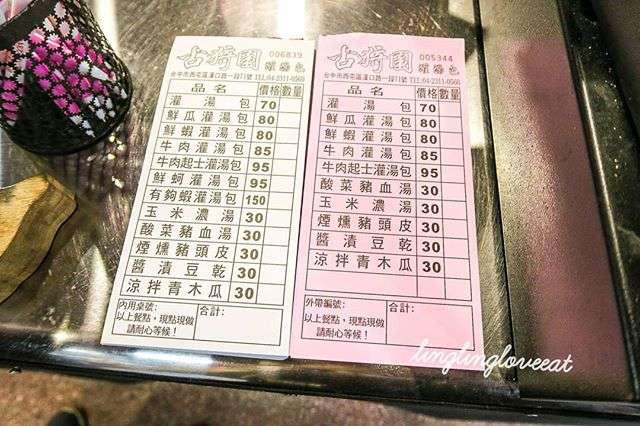 006839
灌湯包
台中市西屯區漢口路一段71號 TEL:04-2311-0568
品名 價格 數量
灌湯包 70
鮮瓜灌湯包 80
鮮蝦灌湯包 80
牛肉灌湯包 85
牛肉起士灌湯包 95
鮮蚵灌湯包 95
有夠蝦灌湯包 150
玉米濃湯 30
酸菜豬血湯 30
煙燻豬頭皮 30
醬漬豆乾 30
涼拌青木瓜 30
內用桌號:
合計:
以上餐點，現點現做
請耐心等候！
005344
灌湯包
台中市西屯區漢口路一段71號 TEL:04-2311-0568
品名 價格 數量
灌湯包 70
鮮瓜灌湯包 80
鮮蝦灌湯包 80
牛肉灌湯包 85
牛肉起士灌湯包 95
酸菜豬血湯 30
玉米濃湯 30
煙燻豬頭皮 30
醬漬豆乾 30
涼拌青木瓜 30
外帶編號:
合計:
以上餐點，現點現做
請耐心等候！
linglingloveeat